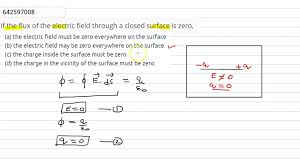 642597008
If the flux of the electric field through a closed surface is zero,
(a) the electric field must be zero everywhere on the surface
(b) the electric field may be zero everywhere on the surface
(c) the charge inside the surface must be zero
(d) the charge in the vicinity of the surface must be zero
-q +q
E ≠ 0
q = 0
ϕ = ∮ E⃗ . ds⃗ = q/ε₀
E = 0 — ①
ϕ = q/ε₀
q = 0 — ②